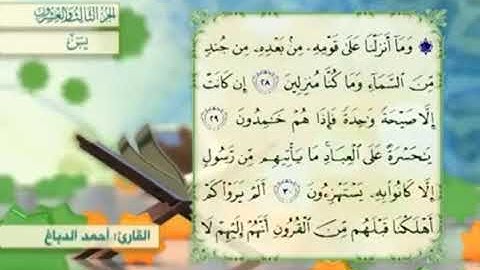 الجزء الثالث والعشرون
يس
وَمَآ أَنزَلْنَا عَلَىٰ قَوْمِهِۦ مِنۢ بَعْدِهِۦ مِن جُندٍ
مِّنَ ٱلسَّمَآءِ وَمَا كُنَّا مُنزِلِينَ ٢٨ إِن كَانَتْ
إِلَّا صَيْحَةً وَٰحِدَةً فَإِذَا هُمْ خَٰمِدُونَ ٢٩
يَٰحَسْرَةً عَلَى ٱلْعِبَادِ مَا يَأْتِيهِم مِّن رَّسُولٍ
إِلَّا كَانُوا۟ بِهِۦ يَسْتَهْزِءُونَ ٣٠ أَلَمْ يَرَوْا۟ كَمْ
أَهْلَكْنَا قَبْلَهُم مِّنَ ٱلْقُرُونِ أَنَّهُمْ إِلَيْهِمْ لَا
القارئ: أحمد الدباغ